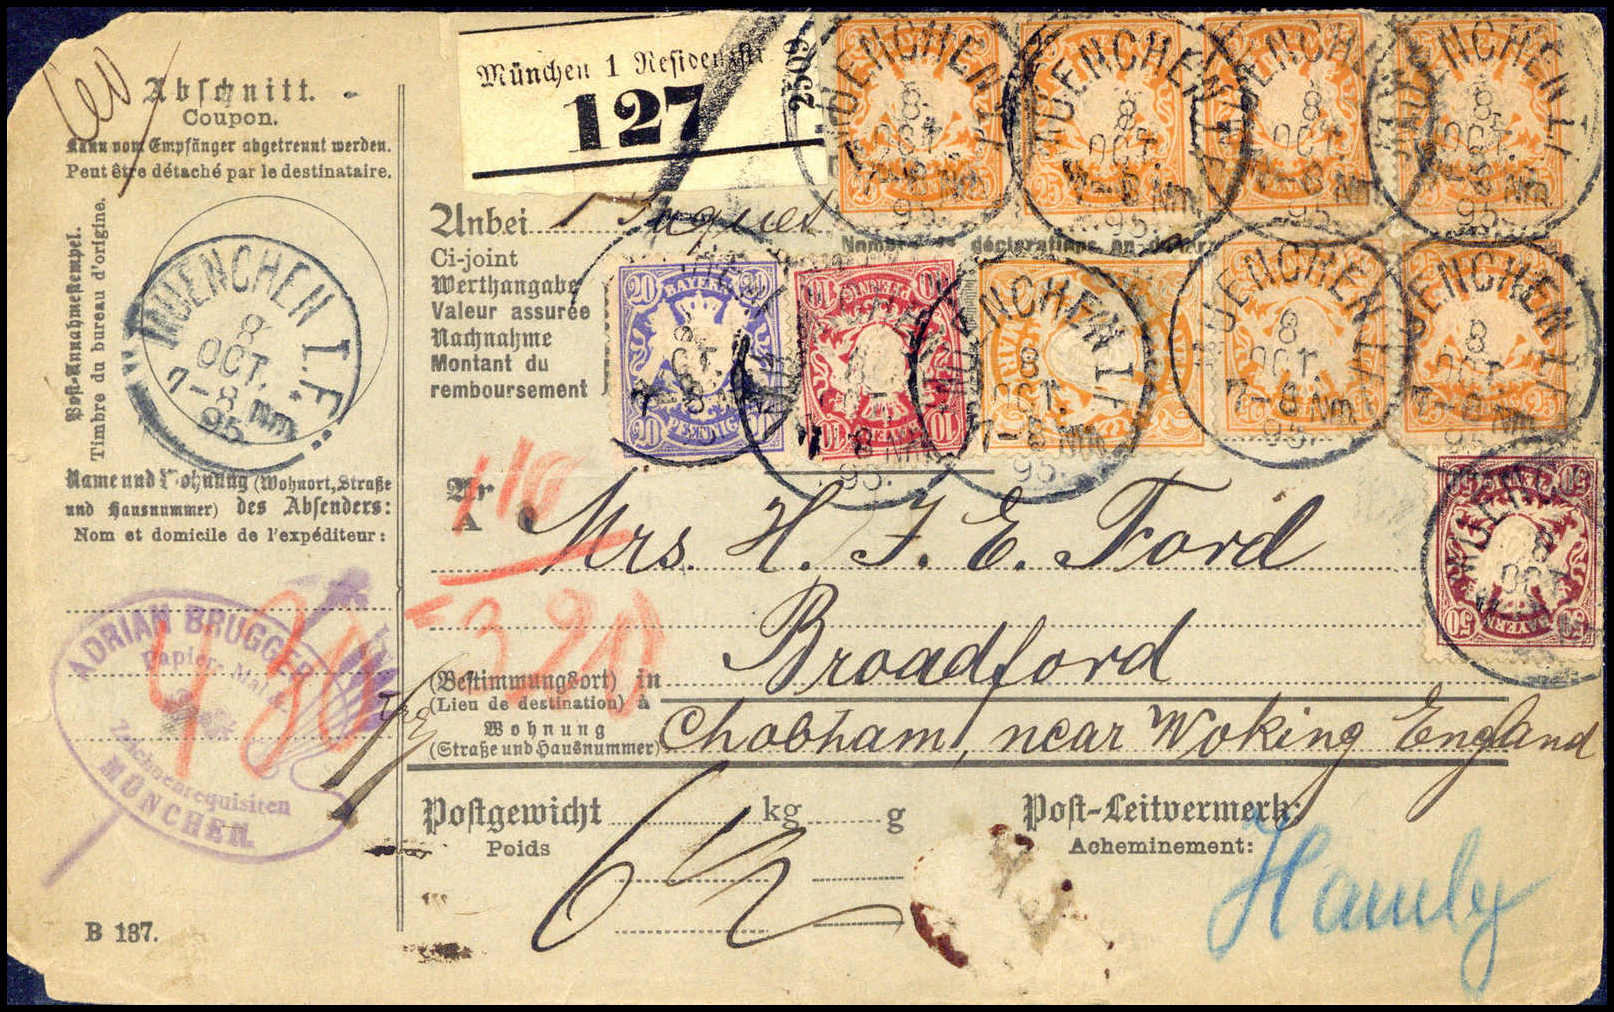 Abschnitt.
Coupon.
Kann vom Empfänger abgetrennt werden.
Peut être détaché par le destinataire.
Post-Annahmestempel.
Timbre du bureau d'origine.
MUENCHEN I.F.
8
OCT.
7-8 Nm
95
Name und Wohnung (Wohnort, Straße
und Hausnummer) des Absenders:
Nom et domicile de l'expéditeur:
ADRIAN BRUGGER
Papier- Mal &
Zeichenrequisiten
MÜNCHEN.
B 137.
München 1 Residenzstr
127
2509
Anbei
Ci-joint
Werthangabe
Valeur assurée
Nachnahme
Montant du
remboursement
déclarations en douane
20 BAYERN 20
20 PFENNIG 20
10 BAYERN 10
10 PFENNIG 10
25 25
50 BAYERN 50
MUENCHEN I.F.
8
OCT.
7-8 Nm
95.
An
A
110
320
Mrs. H. J. E. Ford
Broadford
(Bestimmungsort) in
(Lieu de destination) à
Wohnung
(Straße und Hausnummer)
Chobham, near Woking England
Postgewicht kg g
Poids
6 1/2
Post-Leitvermerk:
Acheminement: